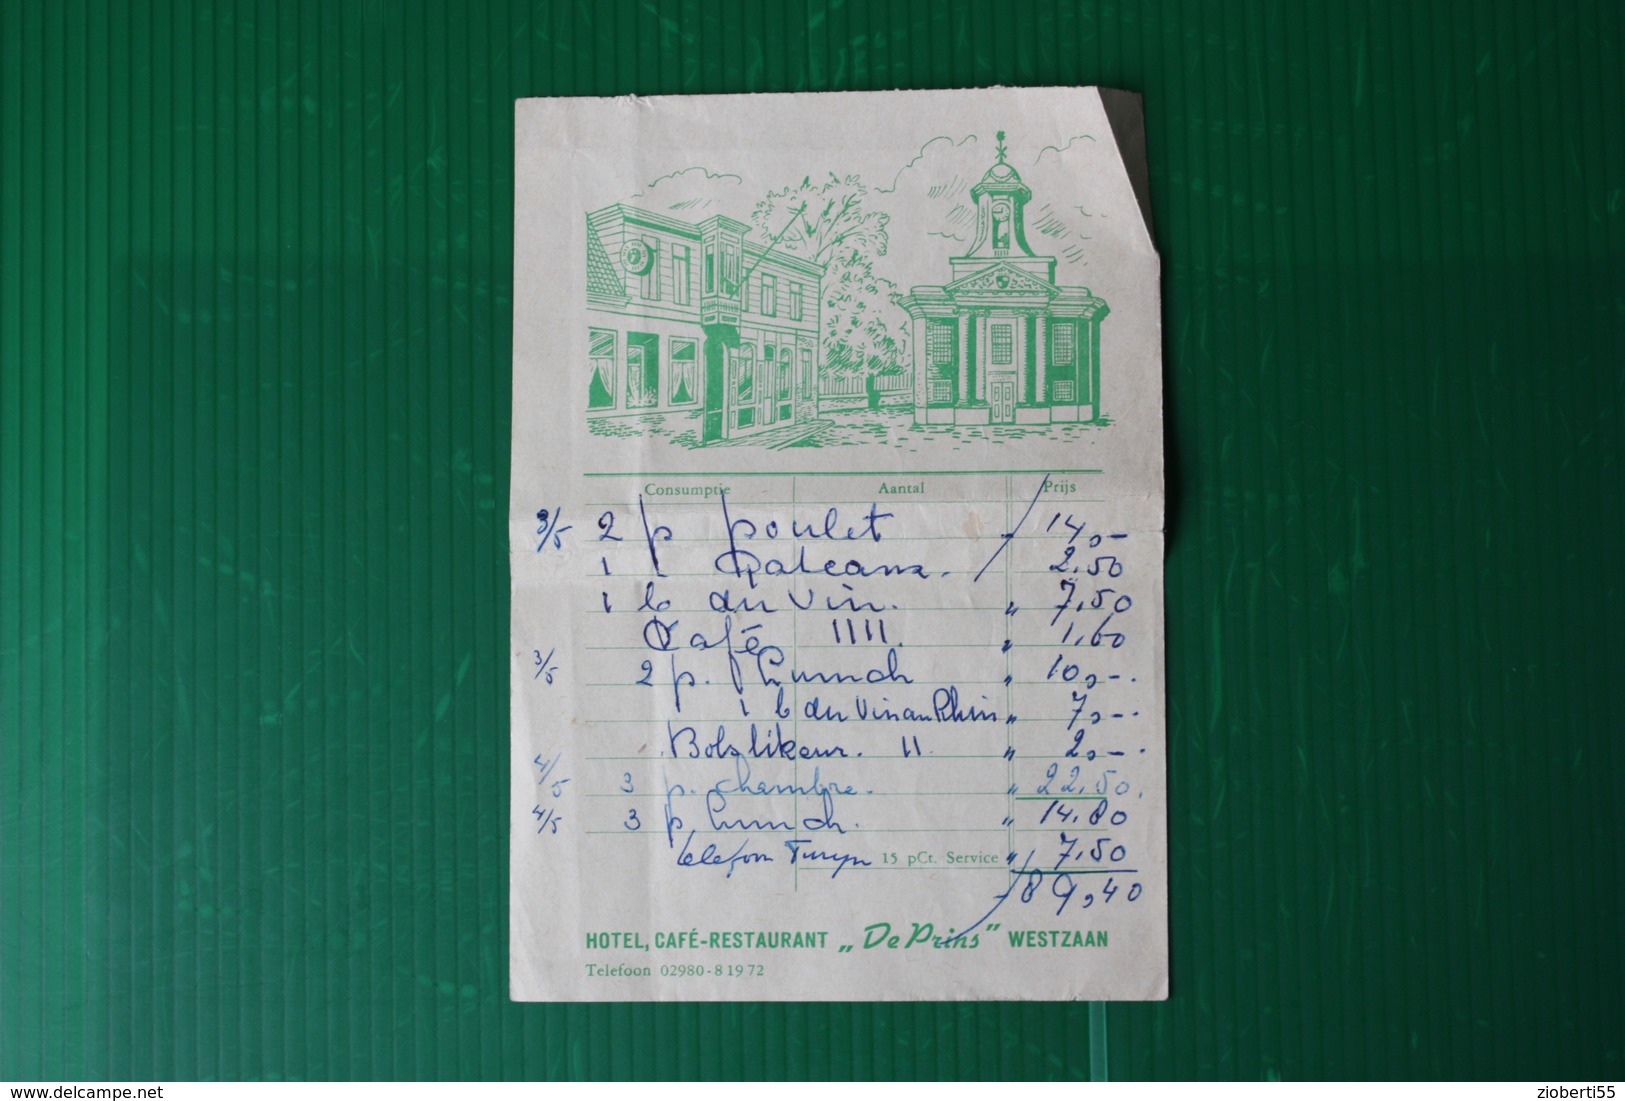 Consumptie Aantal Prijs
3/5 2 p poulet - 14,-
1 Gateaux. 2.50
1 b du Vin. " 7,50
Café IIII. " 1,60
3/5 2 p. Lunch " 10,-.
1 b du Vin au Rhin " 7,-.
Bols likeur. II. " 2,-.
4/5 3 p. chambre. " 22,50.
4/5 3 p. Lunch. " 14.80
telefoon Turyn 15 pCt. Service " 7,50
89,40
HOTEL, CAFÉ-RESTAURANT „De Prins" WESTZAAN
Telefoon 02980-81972
delcampe.net
zioberti55